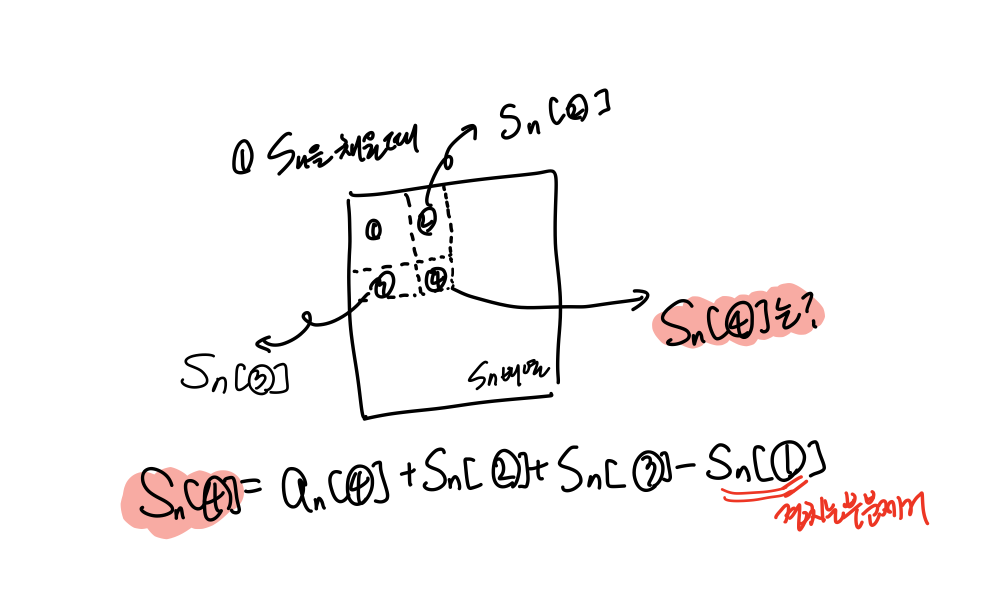 ① Sn을 채울때
Sn[②]
①
②
③
④
Sn[④]는?
Sn[③]
Sn배열
Sn[④] = an[④] + Sn[②] + Sn[③] - Sn[①]
겹치는부분제거